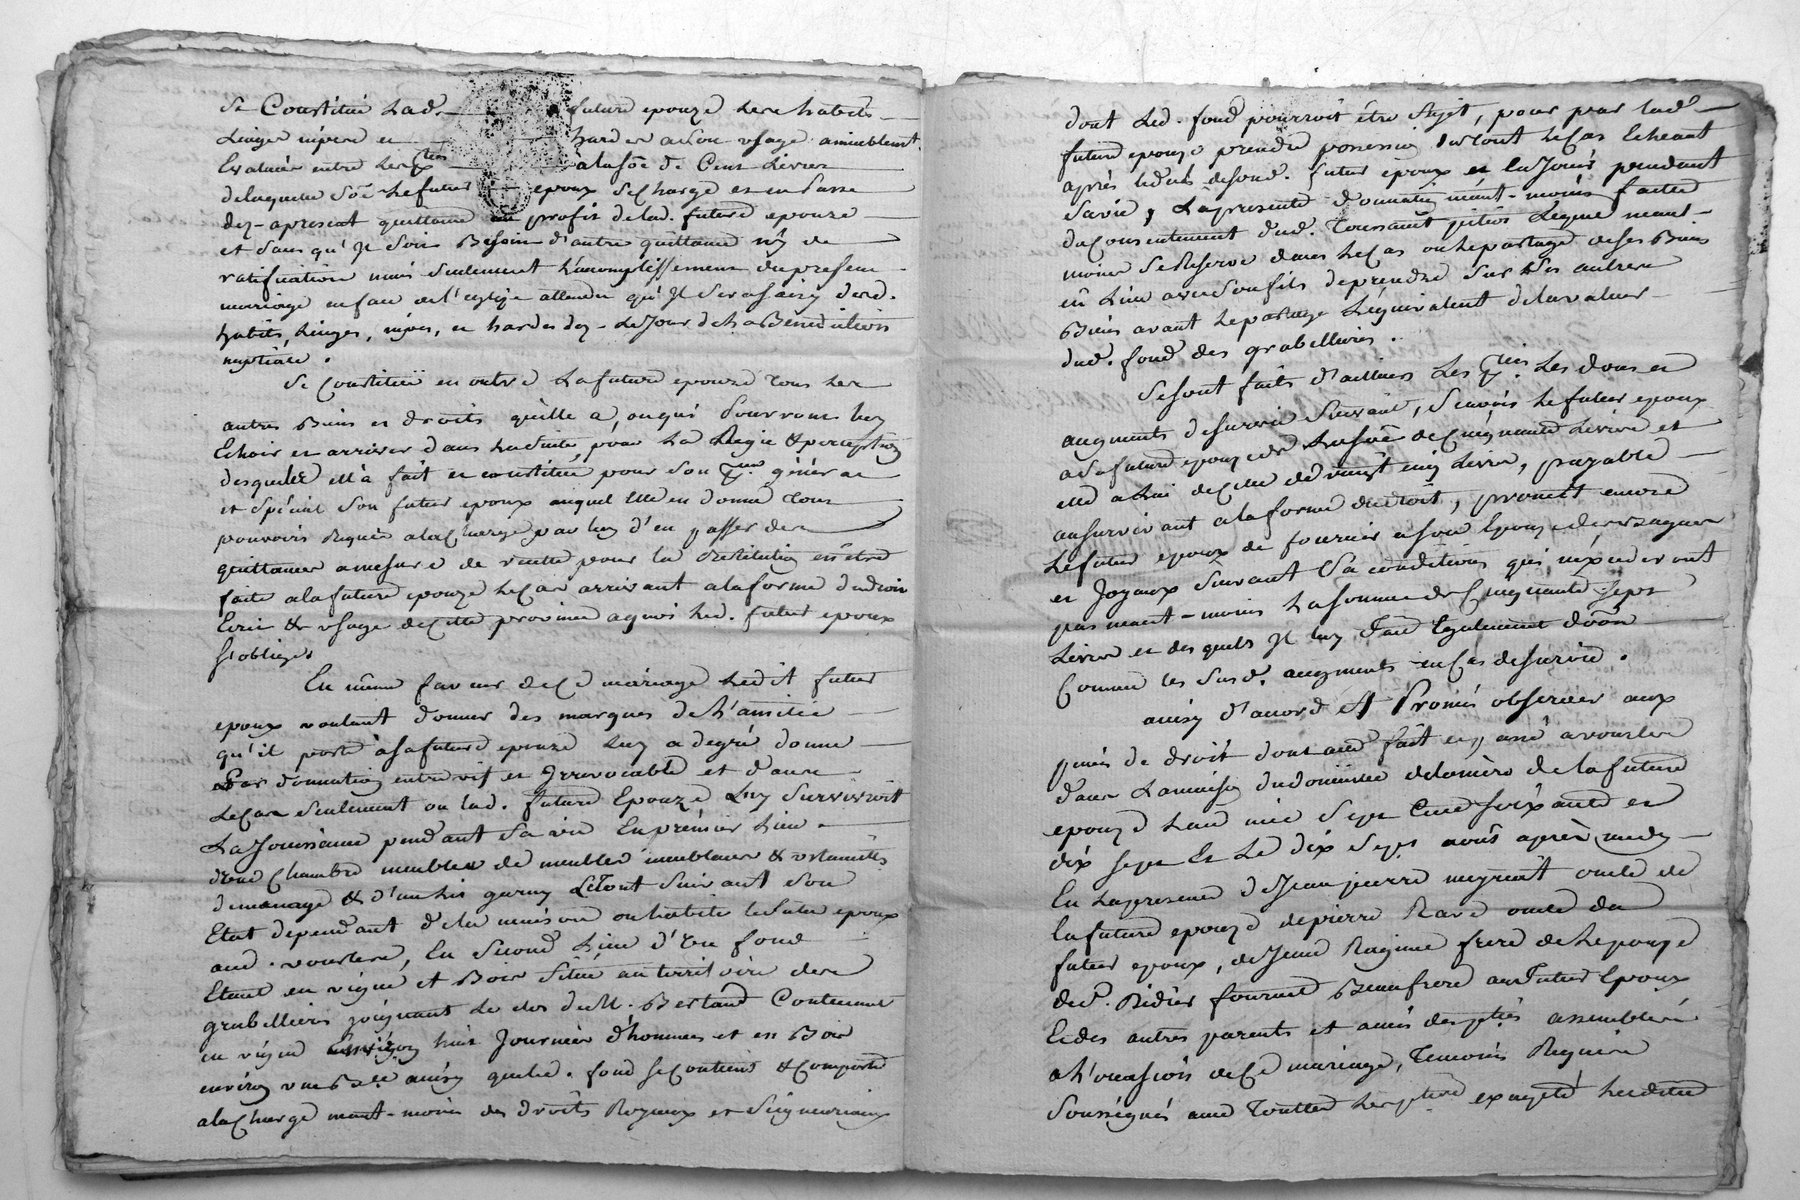 Se Constitüe Lad. future epouze Ses habits
Linges nipes et hardes a son usage amiablement
Evaluées entre Les pties a la sõe de Cent Livres
de laquelle sõe Le futur epoux Se charge et en passe
dez-apresent quittance au profit de lad. future epouze
et sans qu'Jl soit Besoin d'autre quittance n'y de
ratification mais seulement L'accomplissement du present
mariage en face de l'eglize attendu qu'Jl sera saisy desd.
habits, Linges, nipes, et hardes dez-Le Jour de La Benediction
nuptiale.
Se Constitüe en outre La future epouze tous Ses
autres Biens et droits qu'elle a, ou qui Pourront luy
Echoir et arriver dans La suitte, pour La Regie & perception
desquels Ell'a fait et constitüe pour son general
et Spécial Son futur epoux auquel Elle en donne tous
pouvoirs Requis a la Charge par luy d'en passer des
quittances a mesure de recette pour la Restitution en être
faite a la future epouze Le Cas arrivant a la forme du droit
Ecrit & usage de Cette province a quoi Led. futur epoux
s'oblige.
En même faveur de Ce mariage Ledit futur
epoux voulant donner des marques de L'amitié
qu'il porte à sa future epouze Luy a degré donne
Par donnation entre vif et Jrrevocable et dans
Le Cas seulement ou lad. future Epouze Luy Survivroit
La Jouissance pendant Sa vie En prémier Lieu
d'une Chambre meublée de meubles meublans & ustancilles
de menage & d'un lit garny Le Tout Suivant son
Etat dependant de la maison ou habite Le futur epoux
aud. vourlere, En Second Lieu d'un fond
Etant en vigne et Bois Sitüé au territoire des
grabellieres joignant Le clos de M. Bertaud Contenant
en vigne Environ huit Journées d'hommes et en Bois
environ une ainsy que led. fond Se Contient & Comporte
a la Charge neant-moins des droits Royaux et Seigneuriaux
dont Led. fond pourroit être Sujet, pour par lad.
future epouze prendre possession du tout Le Cas Echeant
après le deces desond. futur epoux et en Jouir pendant
Sa vie, La presente donnation néant-moins faite
du Consentement dud. Toussaint Lequel neant-
moins Se Reserve dans Le Cas ou Le partage de Ses Biens
eu Lieu avec Son fils de prendre Sur Ses autres
Biens avant Le partage L'équivalent de la valeur
dud. fond des grabellieres.
Se sont faits d'ailleurs Les pties Les dons et
augments de survie Suivant, Sçavoir Le futur epoux
a sa future epouze de La Sõe de Cinquante Livres et
elle a Lui de Celle de vingt cinq Livres, payable
au survivant a la forme du droit, promet encore
Le futur epoux de fournir a son Epouze des Bagues
et Joyaux Suivant Sa condition qui n'éxcederont
pas neant-moins La somme de Cinquante Sept
Livres et desquels Jl luy fait Egalement dõon
Comme les Susd. augments en Cas de survie.
ainsy d'accord et Promis observer aux
peines de droit dont acte fait et passé a vourlere
dans La maison du domicile de la mère de la future
epouze L'and mil Sept Cent Soixante et
dix Sept Et Le dix Sept aout après midy
En La presence de Jean pierre meyrieat oncle de
La future epouze de pierre Ravé oncle du
futur epoux, de Jean Ragime frere de Lepouze
de d. Didier fournet Beaufrere au futur Epoux
Et des autres parents et amis des pties assemblés
a L'occasion de Ce mariage, Temoins Requis
Soussignés avec Touttes Les pties excepté Ledit